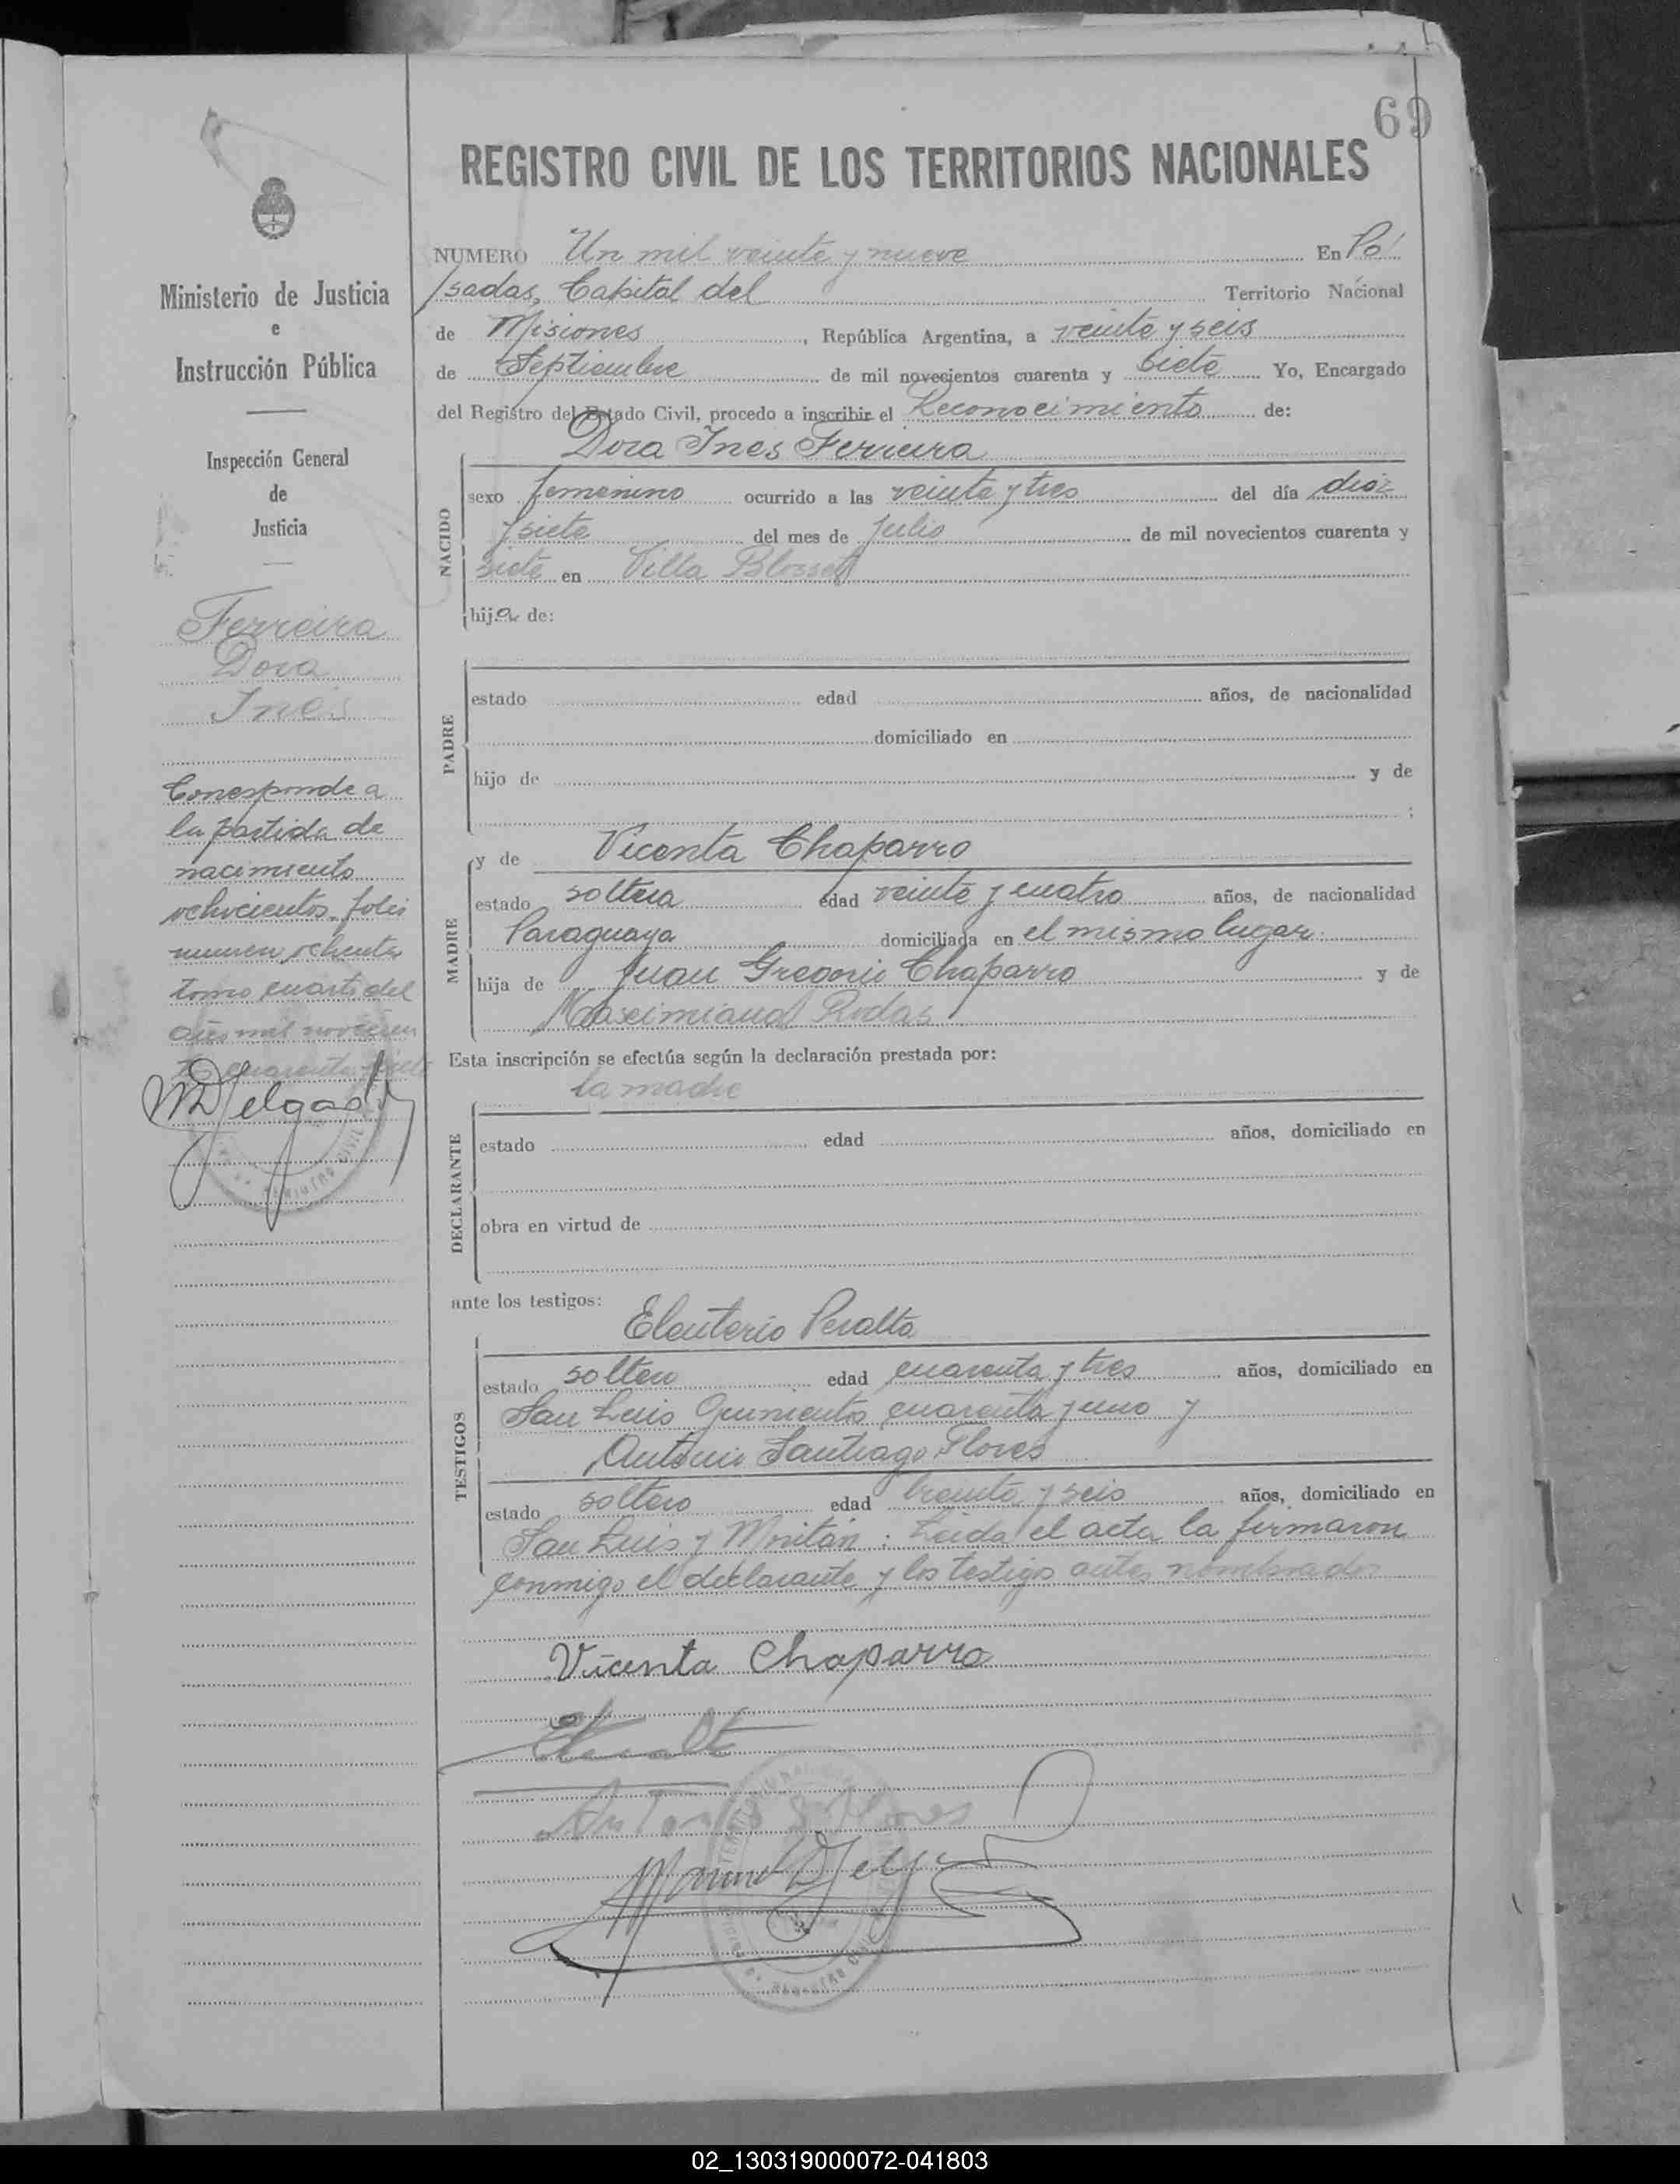 69
REGISTRO CIVIL DE LOS TERRITORIOS NACIONALES
Ministerio de Justicia
e
Instrucción Pública
Inspección General
de
Justicia
Ferreira
Dora
Inés
Corresponde a
la partida de
nacimiento
ochocientos folio
número ochenta
tomo cuarto del
año mil novecien
tos cuarenta y siete
MDelgado
NUMERO Un mil veinte y nueve En Po/
/sadas, Capital del Territorio Nacional
de Misiones, República Argentina, a veinte y seis
de Septiembre de mil novecientos cuarenta y siete Yo, Encargado
del Registro del Estado Civil, procedo a inscribir el Reconocimiento de:
Dora Ines Ferreira
NACIDO
sexo femenino ocurrido a las veinte y tres del día diez
y siete del mes de Julio de mil novecientos cuarenta y
siete en Villa Blosset
hija de:
PADRE
estado edad años, de nacionalidad
domiciliado en
hijo de y de
;
MADRE
y de Vicenta Chaparro
estado soltera edad veinte y cuatro años, de nacionalidad
Paraguaya domiciliada en el mismo lugar
hija de Juan Gregorio Chaparro y de
Maximiana Rodas
Esta inscripción se efectúa según la declaración prestada por:
la madre
DECLARANTE
estado edad años, domiciliado en
obra en virtud de
ante los testigos:
Eleuterio Peralta
TESTIGOS
estado soltero edad cuarenta y tres años, domiciliado en
San Luis Quinientos cuarenta y uno y
Antonio Santiago Flores
estado soltero edad treinta y seis años, domiciliado en
San Luis y Moritán : Leida el acta la firmaron
conmigo el declarante y los testigos antes nombrados
Vicenta Chaparro
EPeralta
Antonio S Flores
02_130319000072-041803